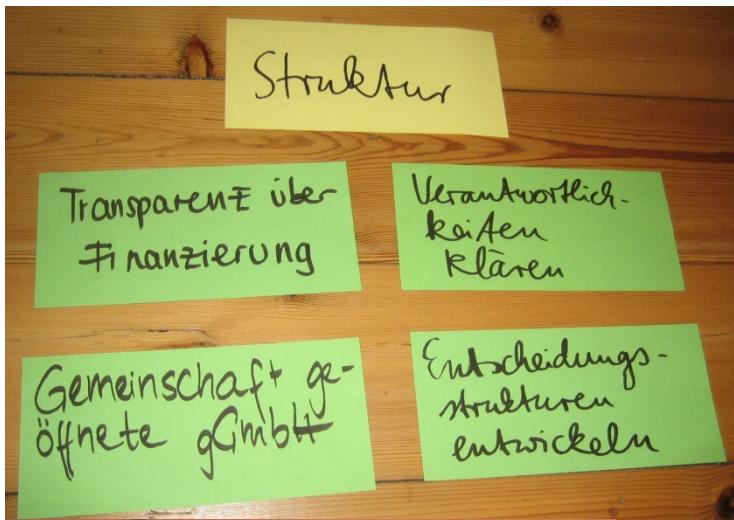 Struktur
Transparenz über
Finanzierung
Verantwortlich-
keiten
klären
Gemeinschaft ge-
öffnete gGmbH
Entscheidungs-
strukturen
entwickeln